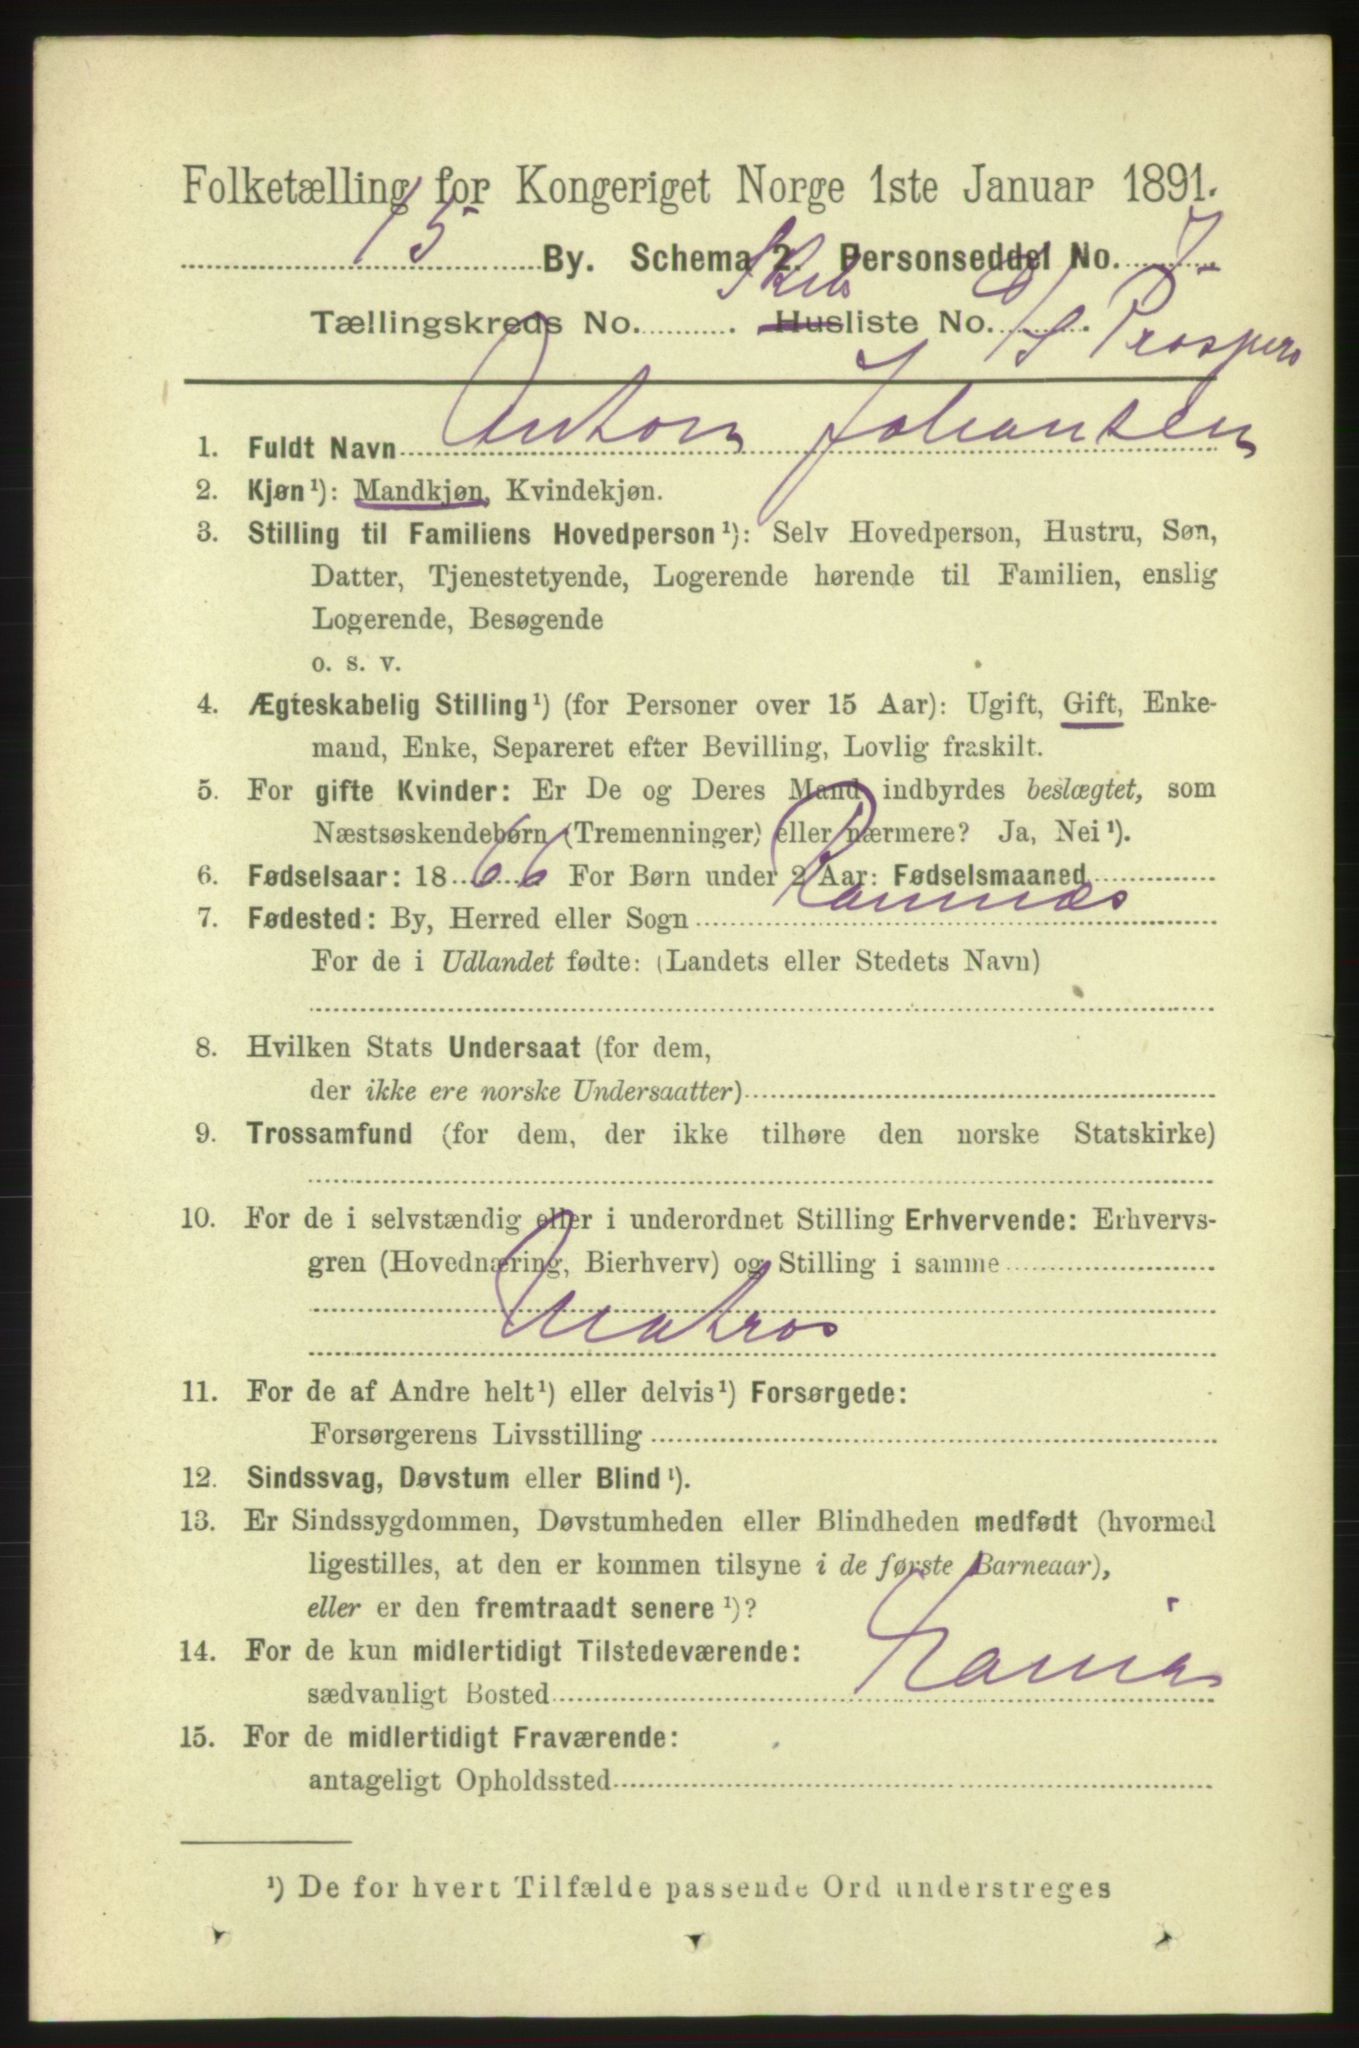 Folketælling for Kongeriget Norge 1ste Januar 1891.
15 By. Schema 2. Personseddel No. 7
Tællingskreds No. . Skibsliste No. . S/S Prospero
1. Fuldt Navn Anton Johansen
2. Kjøn¹): Mandkjøn, Kvindekjøn.
3. Stilling til Familiens Hovedperson¹): Selv Hovedperson, Hustru, Søn,
Datter, Tjenestetyende, Logerende hørende til Familien, enslig
Logerende, Besøgende
o. s. v.
4. Ægteskabelig Stilling¹) (for Personer over 15 Aar): Ugift, Gift, Enke-
mand, Enke, Separeret efter Bevilling, Lovlig fraskilt.
5. For gifte Kvinder: Er De og Deres Mand indbyrdes beslægtet, som
Næstsøskendebørn (Tremenninger) eller nærmere? Ja, Nei¹).
6. Fødselsaar: 1866 For Børn under 2 Aar: Fødselsmaaned
7. Fødested: By, Herred eller Sogn Ramnæs
For de i Udlandet fødte: (Landets eller Stedets Navn)
8. Hvilken Stats Undersaat (for dem,
der ikke ere norske Undersaatter)
9. Trossamfund (for dem, der ikke tilhøre den norske Statskirke)
10. For de i selvstændig eller i underordnet Stilling Erhvervende: Erhvervs-
gren (Hovednæring, Bierhverv) og Stilling i samme
Matros
11. For de af Andre helt¹) eller delvis¹) Forsørgede:
Forsørgerens Livsstilling
12. Sindssvag, Døvstum eller Blind¹).
13. Er Sindssygdommen, Døvstumheden eller Blindheden medfødt (hvormed
ligestilles, at den er kommen tilsyne i de første Barneaar),
eller er den fremtraadt senere¹)?
14. For de kun midlertidigt Tilstedeværende:
sædvanligt Bosted
15. For de midlertidigt Fraværende:
antageligt Opholdssted
¹) De for hvert Tilfælde passende Ord understreges